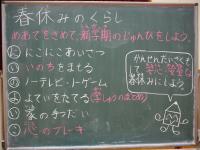 春休みのくらし
めあてをきめて、新学期のじゅんびをしよう。
にこにこあいさつ
いのちをまもる
ノーテレビ・ノーゲーム
家の手つだい
心のブレーキ
かんぜんたいさくもして
安心・安全な
春休みにしよう